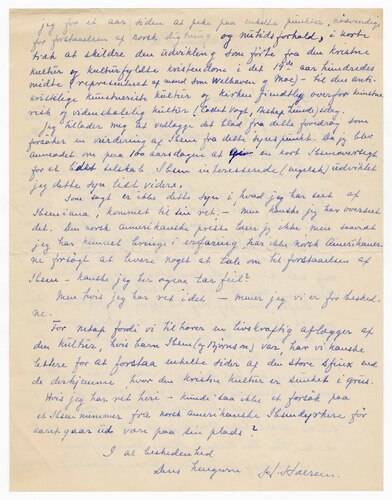 jeg for et aar siden at peke paa enkelte punkter, nødvendig
for forstaaelsen av norsk digtning og nutidsforhold, i korte
træk at skildre den utvikling som førte fra den kristne
kultur og kulturfyldte kristendom i det 19de aarhundredes
midte (representeret av mænd som Welhaven og Moe) - til den anti-
kristelige kunstneriske kultur og kirken fiendtlig overfor kunstne-
risk og videnskabelig kultur idag.
Jeg tillader mig at vedlægge det blad fra dette foredrag som
forsøker en vurdering av Ibsen fra dette synspunkt. Da jeg blev
anmodet om paa 100 aarsdagen at en kort Ibsenoversigt
for et litet selskab i Ibsen interesserede (engelsk) utviklet
jeg dette syn litt videre.
Som sagt er ikke dette syn i, hvad jeg har sett av
Ibseniana, kommet til sin ret, - men kanske jeg har overseet
det. Den norsk amerikanske presse læser jeg ikke, men saavidt
jeg har kunnet bringe i erfaring har ikke norsk Amerikaner-
ne forsøgt at levere noget at tale om til forstaaelsen av
Ibsen - kanske jeg her ogsaa tar feil?
Men hvis jeg har ret i det - mener jeg vi er for besked-
ne.
For netop fordi vi tilhører en livskraftig avlægger av
den kultur, hvis barn Ibsen (og Bjørnson) var, har vi kanske
lettere for at forstaa enkelte sider af den store sfinx end
de derhjemme hvor den kristne kultur er sunket i grus.
Hvis jeg har ret heri - kunde saa ikke et forsøk paa
et Ibsen nummer fra norsk amerikanske Ibsendyrkere for
aaret gaar ud være paa sin plads?
I al beskedenhed
Deres
H.